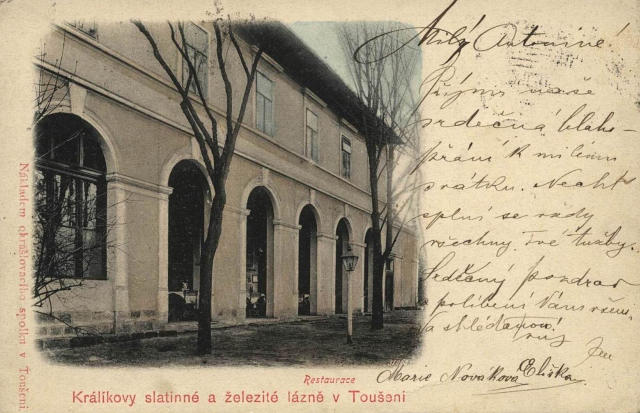 Milý Antoníne!
Přijmi naše
srdečná blaho-
přání k milému
svátku. Nechť
splní se vždy
všechny Tvé tužby.
Srdečný pozdrav
a políbení Vám všem.
Na shledanou!
Marie Nováková Eliška
Restaurace
Králíkovy slatinné a železité lázně v Toušeni
Nákladem okrašlovacího spolku v Toušeni.